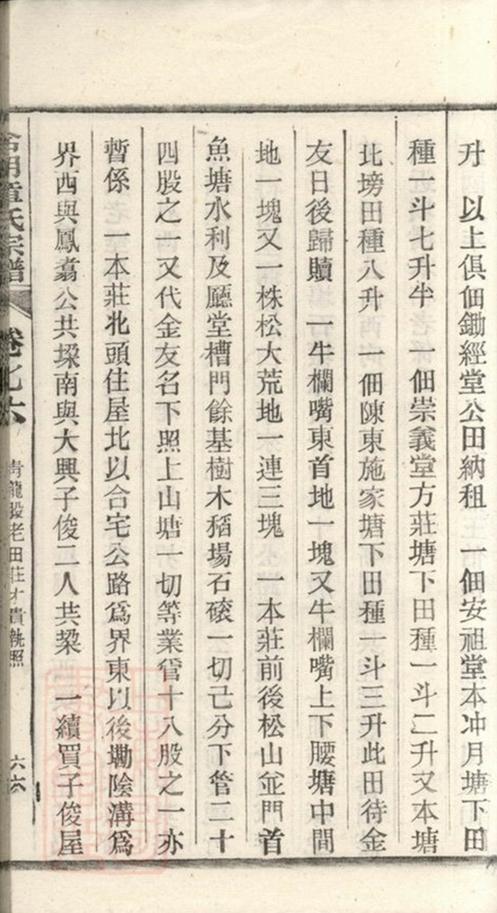 升　以上俱佃鋤經堂公田納租　一佃安祖堂本冲月塘下田
種一斗七升半　一佃崇義堂方莊塘下田種一斗二升又本塘
北塝田種八升　一佃陳東施家塘下田種一斗三升此田待金
友日後歸贖　一牛欄嘴東首地一塊又牛欄嘴上下腰塘中間
地一塊又一株松大荒地一連三塊　一本莊前後松山並門首
魚塘水利及廳堂槽門餘基樹木稻場石磙一切己分下管二十
四股之一又代金友名下照上山塘一切等業管十八股之一亦
暫係　一本莊北頭住屋北以合宅公路爲界東以後墈陰溝爲
界西與鳳翥公共墚南與大興子俊二人共梁　一續買子俊屋
章氏宗譜
卷七六
青龍股老田莊才貴執照
六六